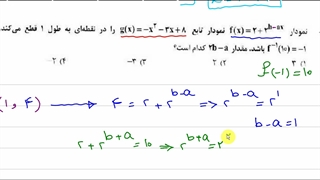 نمودار تابع f(x) = 2 + 2^(b-ax) نمودار تابع g(x) = -x² - 3x + 8 را در نقطه‌ای به طول ۱ قطع می‌کند.
f⁻¹(10) = -1 باشد، مقدار 2b-a کدام است؟
۳ (۱ ۲ (۲ -۳ (۳ -۲ (۴
f(-1) = 10
(1, 4) → 4 = 2 + 2^(b-a) ⇒ 2^(b-a) = 2^1
b-a = 1
2 + 2^(b+a) = 10 ⇒ 2^(b+a) = 2